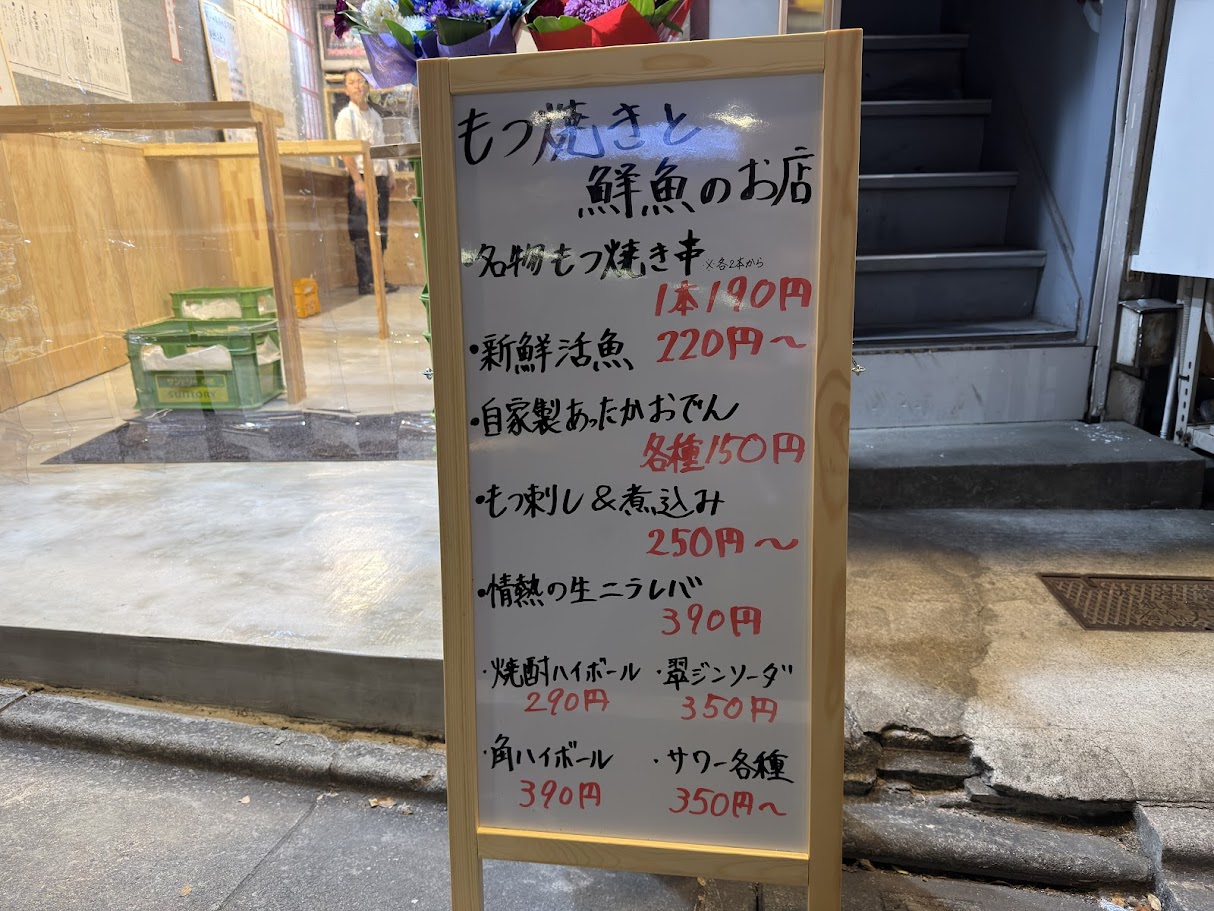 もつ焼きと
鮮魚のお店
・名物もつ焼き串 ※各2本から
1本190円
・新鮮活魚 220円〜
・自家製あったかおでん
各種150円
・もつ刺し&煮込み
250円〜
・情熱の生ニラレバ
390円
・焼酎ハイボール ・翠ジンソーダ
290円 350円
・角ハイボール ・サワー各種
390円 350円〜
サントリー
SUNTORY